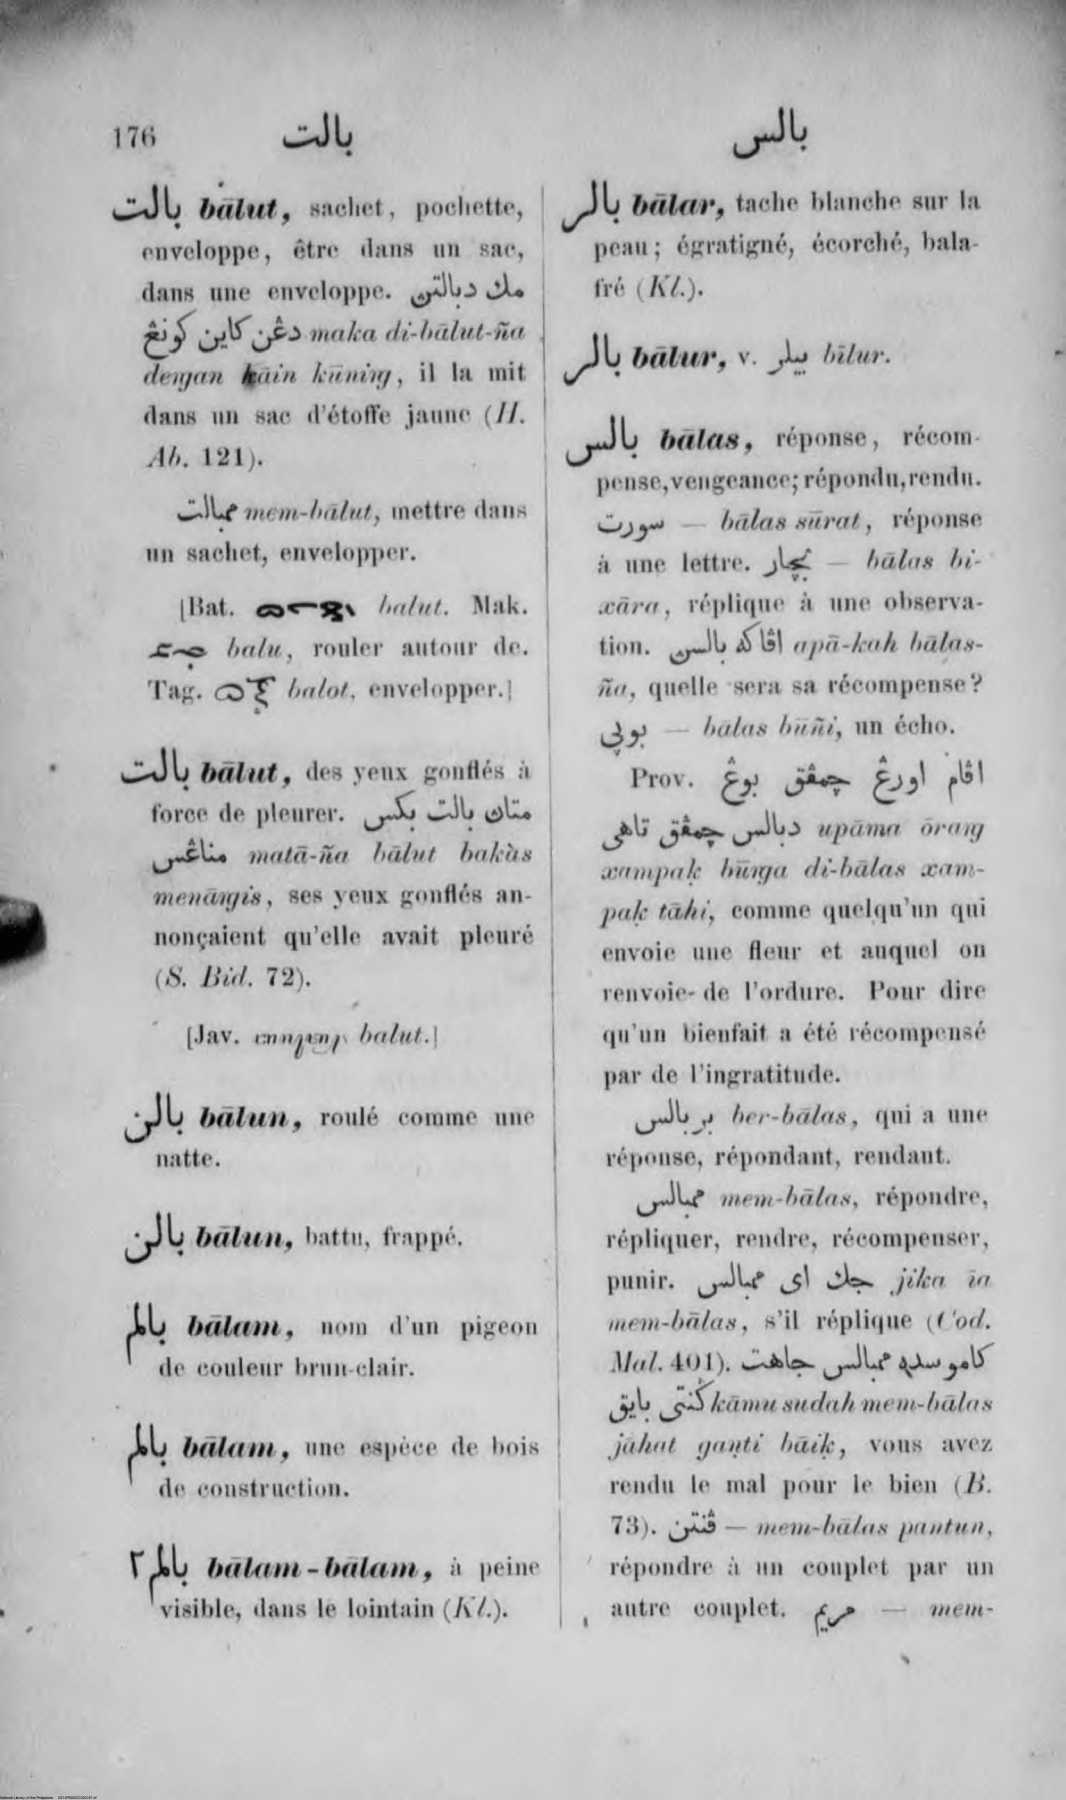 176 بالت بالس
بالت bālut, sachet, pochette,
enveloppe, être dans un sac,
dans une enveloppe. مك دبالتن
دڠن كاين كونيڠ maka di-bālut-ña
deŋgan kāin kūniŋg, il la mit
dans un sac d'étoffe jaune (H.
Ab. 121).
ممبالت mem-bālut, mettre dans
un sachet, envelopper.
[Bat. balut. Mak.
balu, rouler autour de.
Tag. balot, envelopper.]
بالت bālut, des yeux gonflés à
force de pleurer. متان بالت بكس
مناڠس matā-ña bālut bakàs
menāŋgis, ses yeux gonflés an-
nonçaient qu'elle avait pleuré
(S. Bid. 72).
[Jav. balut.]
بالن bālun, roulé comme une
natte.
بالن bālun, battu, frappé.
بالم bālam, nom d'un pigeon
de couleur brun-clair.
بالم bālam, une espèce de bois
de construction.
بالم٢ bālam-bālam, à peine
visible, dans le lointain (Kl.).
بالر bālar, tache blanche sur la
peau; égratigné, écorché, bala-
fré (Kl.).
بالر bālur, v. بيلر bīlur.
بالس bālas, réponse, récom-
pense, vengeance; répondu, rendu.
سورت — bālas sūrat, réponse
à une lettre. بچار — bālas bi-
xāra, réplique à une observa-
tion. اڤاكه بالسن apā-kah bālas-
ña, quelle sera sa récompense?
بوني — bālas būñi, un écho.
Prov. اڤام اورڠ چمڤق بوڠ
دبالس چمڤق تاهى upāma ōraŋg
xampaḳ būŋga di-bālas xam-
paḳ tāhi, comme quelqu'un qui
envoie une fleur et auquel on
renvoie de l'ordure. Pour dire
qu'un bienfait a été récompensé
par de l'ingratitude.
بربالس ber-bālas, qui a une
réponse, répondant, rendant.
ممبالس mem-bālas, répondre,
répliquer, rendre, récompenser,
punir. جك اى ممبالس jika īa
mem-bālas, s'il réplique (Cod.
Mal. 401). كامو سده ممبالس جاهت
ݢنتى بايق kāmu sudah mem-bālas
jāhat gaṇti bāiḳ, vous avez
rendu le mal pour le bien (B.
73). ڤنتن — mem-bālas pantun,
répondre à un couplet par un
autre couplet. مريم — mem-